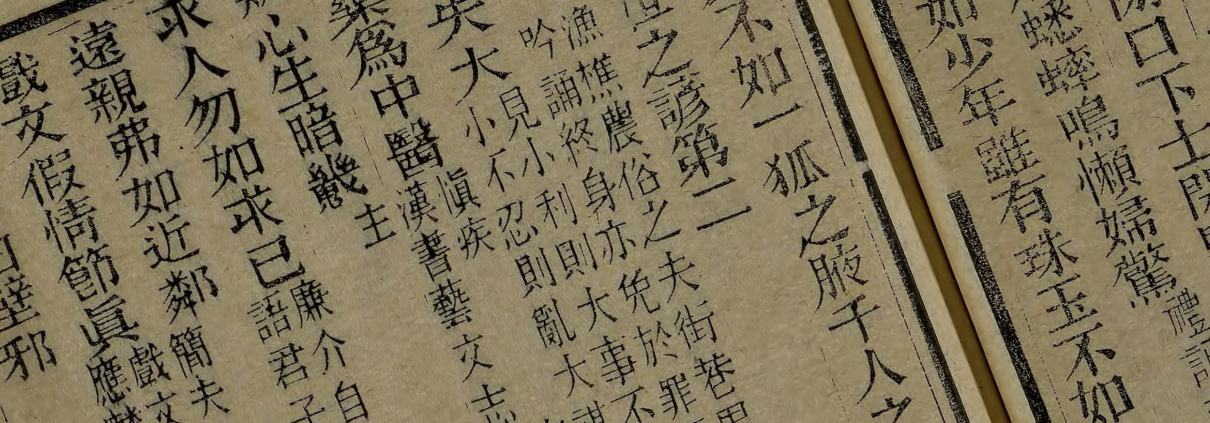 口下士
蟋蟀鳴懶婦驚
如少年雖有珠玉不如
不如一狐之腋千人之
之諺第二
漁樵農俗之夫街巷
吟誦終身亦免於罪
大見小利則大事不
小不忍則亂大謀
為中醫慎疾
漢書藝文志
心生暗
求人勿如求己廉介自
語君子
遠親弗如近鄰簡夫
戲文
戲文假情節眞應
邪